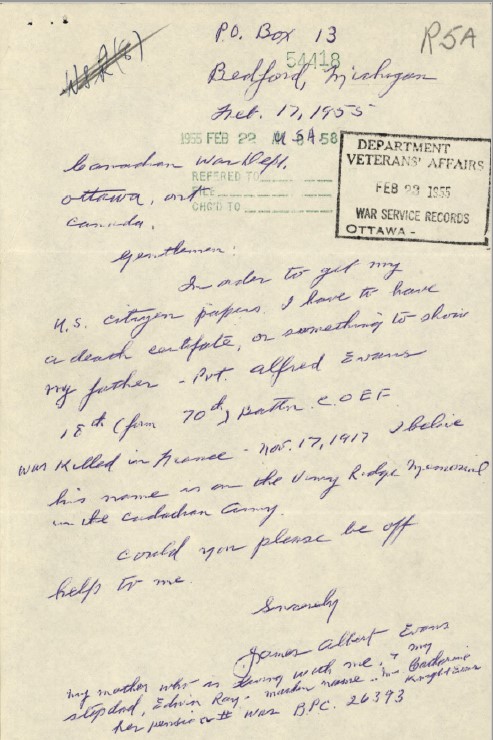 P.O. Box 13
R5A
W.S.R(8)
54418
Bedford, Michigan
Feb. 17, 1955
1955 FEB 22 AM 8 58
U.S.A.
Canadian War Dept.
REFERED TO
Ottawa, ont
FILE
CHG'D TO
Canada.
DEPARTMENT
VETERANS' AFFAIRS
FEB 23 1955
WAR SERVICE RECORDS
OTTAWA -
Gentlemen:
In order to get my
U.S. citizen papers. I have to have
a death certifate, or something to show
my father - Pvt. Alfred Evans
18th (from 70th) Battn. C.O.E.F.
was killed in France - Nov. 17, 1917 I believe
his name is on the Vimy Ridge Memorial
in the Canadian Army.
Could you please be off
help to me.
Sincerely
James Albert Evans
My mother who is living with me, & my
stepdad, Edwin Ray - maiden name - Catherine
Knight Evans
her pension # was B.P.C. 26393